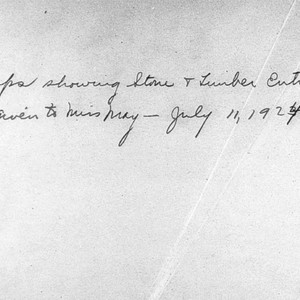 ps showing Stone & Timber Entr
given to Miss May — July 11, 1924